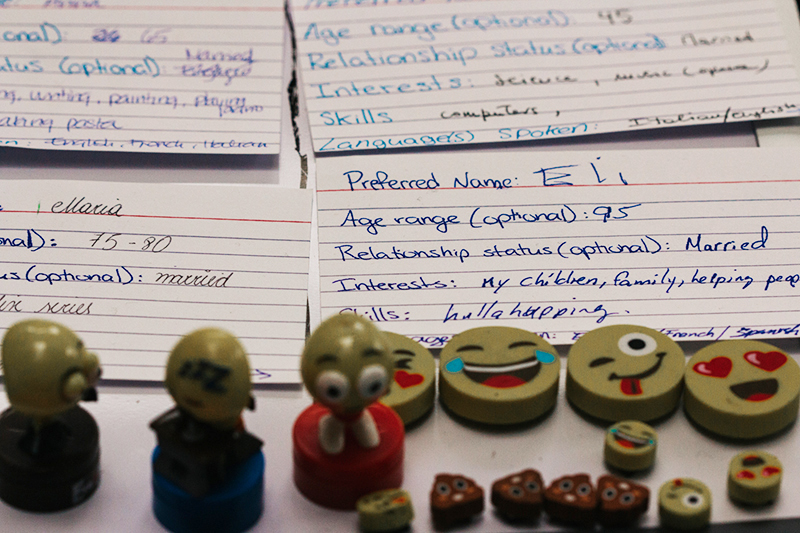 onal): 65
atus (optional): Married
ng, writing, painting, playing
piano
aking pasta
n: English, French, Italian
Age range (optional): 45
Relationship status (optional): Married
Interests: science, music (opera)
Skills computers,
Language(s) Spoken: Italian/english
: Maria
nal): 75-80
us (optional): married
lix series
Preferred Name: Eli,
Age range (optional): 95
Relationship status (optional): Married
Interests: My children, family, helping peop
Skills: hullahupping.
/French/Spanish
zzz